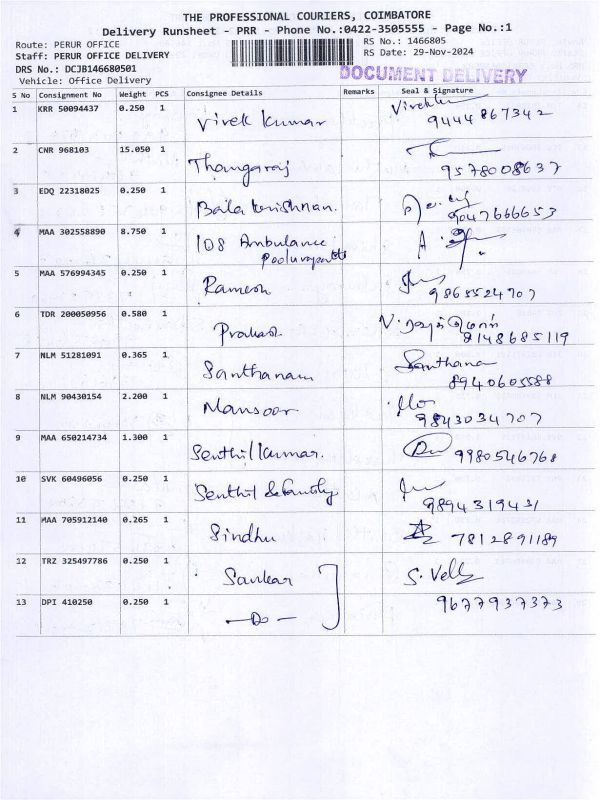 THE PROFESSIONAL COURIERS, COIMBATORE
Delivery Runsheet - PRR - Phone No.:0422-3505555 - Page No.:1
Route: PERUR OFFICE RS No.: 1466805
Staff: PERUR OFFICE DELIVERY RS Date: 29-Nov-2024
DRS No.: DCJB146680501
DOCUMENT DELIVERY
Vehicle: Office Delivery
S No Consignment No Weight PCS Consignee Details Remarks Seal & Signature
1 KRR 50094437 0.250 1 Vivek Kumar
9444867342
2 CNR 968103 15.050 1 Thangaraj
9578008637
3 EDQ 22318025 0.250 1 Balakrishnan.
9047666653
4 MAA 302558890 8.750 1 108 Ambulance
5 MAA 576994345 0.250 1 Ramesh
9865524707
6 TDR 200050956 0.580 1 Prakash
8148685119
7 NLM 51281091 0.365 1 Santhanam Santhana
8940605588
8 NLM 90430154 2.200 1 Mansoor
9843034707
9 MAA 650214734 1.300 1 Senthil Kumar. 9980546768
10 SVK 60496056 0.250 1 Senthil
9894319431
11 MAA 705912140 0.265 1 Sindhu 7812891189
12 TRZ 325497786 0.250 1 Sankar S. Vell
13 DPI 410250 0.250 1 —Do— 9677937373